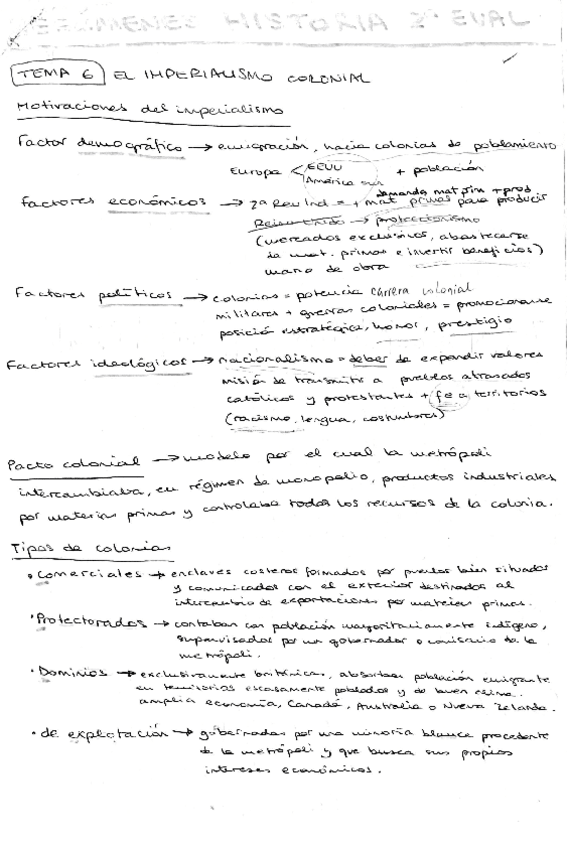 EXÁMENES HISTORIA 2ª EVAL
TEMA 6 EL IMPERIALISMO COLONIAL
Motivaciones del imperialismo
Factor demográfico → emigración, hacia colonias de poblamiento
Europa < EEUU + población
América sur
demanda mat prim + prod
Factores económicos → 2ª Rev Ind = + mat primas para producir
→ proteccionismo
(mercados exclusivos, abastecerse
de mat. primas e invertir beneficios)
mano de obra
Factores políticos → colonias = potencia carrera colonial
militares + guerras coloniales = promocionarse
posición estratégica, honor, prestigio
Factores ideológicos → nacionalismo = deber de expandir valores
misión de transmitir a pueblos atrasados
católicos y protestantes + fe a territorios
(racismo, lengua, costumbres)
Pacto colonial → modelo por el cual la metrópoli
intercambiaba, en régimen de monopolio, productos industriales
por materias primas y controlaba todos los recursos de la colonia.
Tipos de colonias
• Comerciales → enclaves costeros formados por puertos bien situados
y comunicados con el exterior destinados al
intercambio de exportaciones por materias primas.
• Protectorados → contaban con población mayoritariamente indígena,
supervisados por un gobernador o comisario de la
metrópoli.
• Dominios → exclusivamente británicos, absorben población emigrante
en territorios escasamente poblados y de buen clima.
amplia economía, Canadá, Australia o Nueva Zelanda.
• de explotación → gobernadas por una minoría blanca procedente
de la metrópoli y que busca sus propios
intereses económicos.